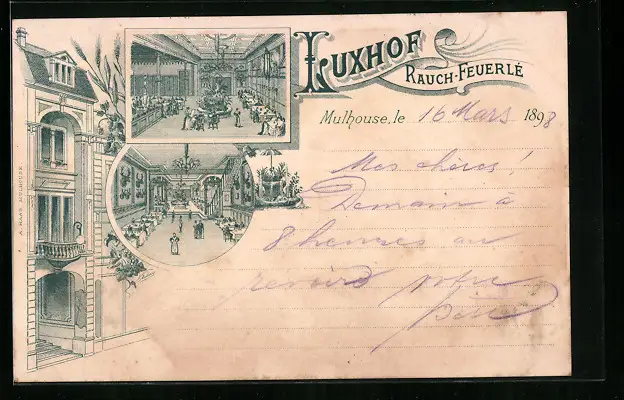 LUXHOF
RAUCH-FEUERLÉ
Mulhouse, le 16 Mars 1898
Mes chères!
Demain à
8 heures au
revoir votre
père
A. HAAS MULHOUSE